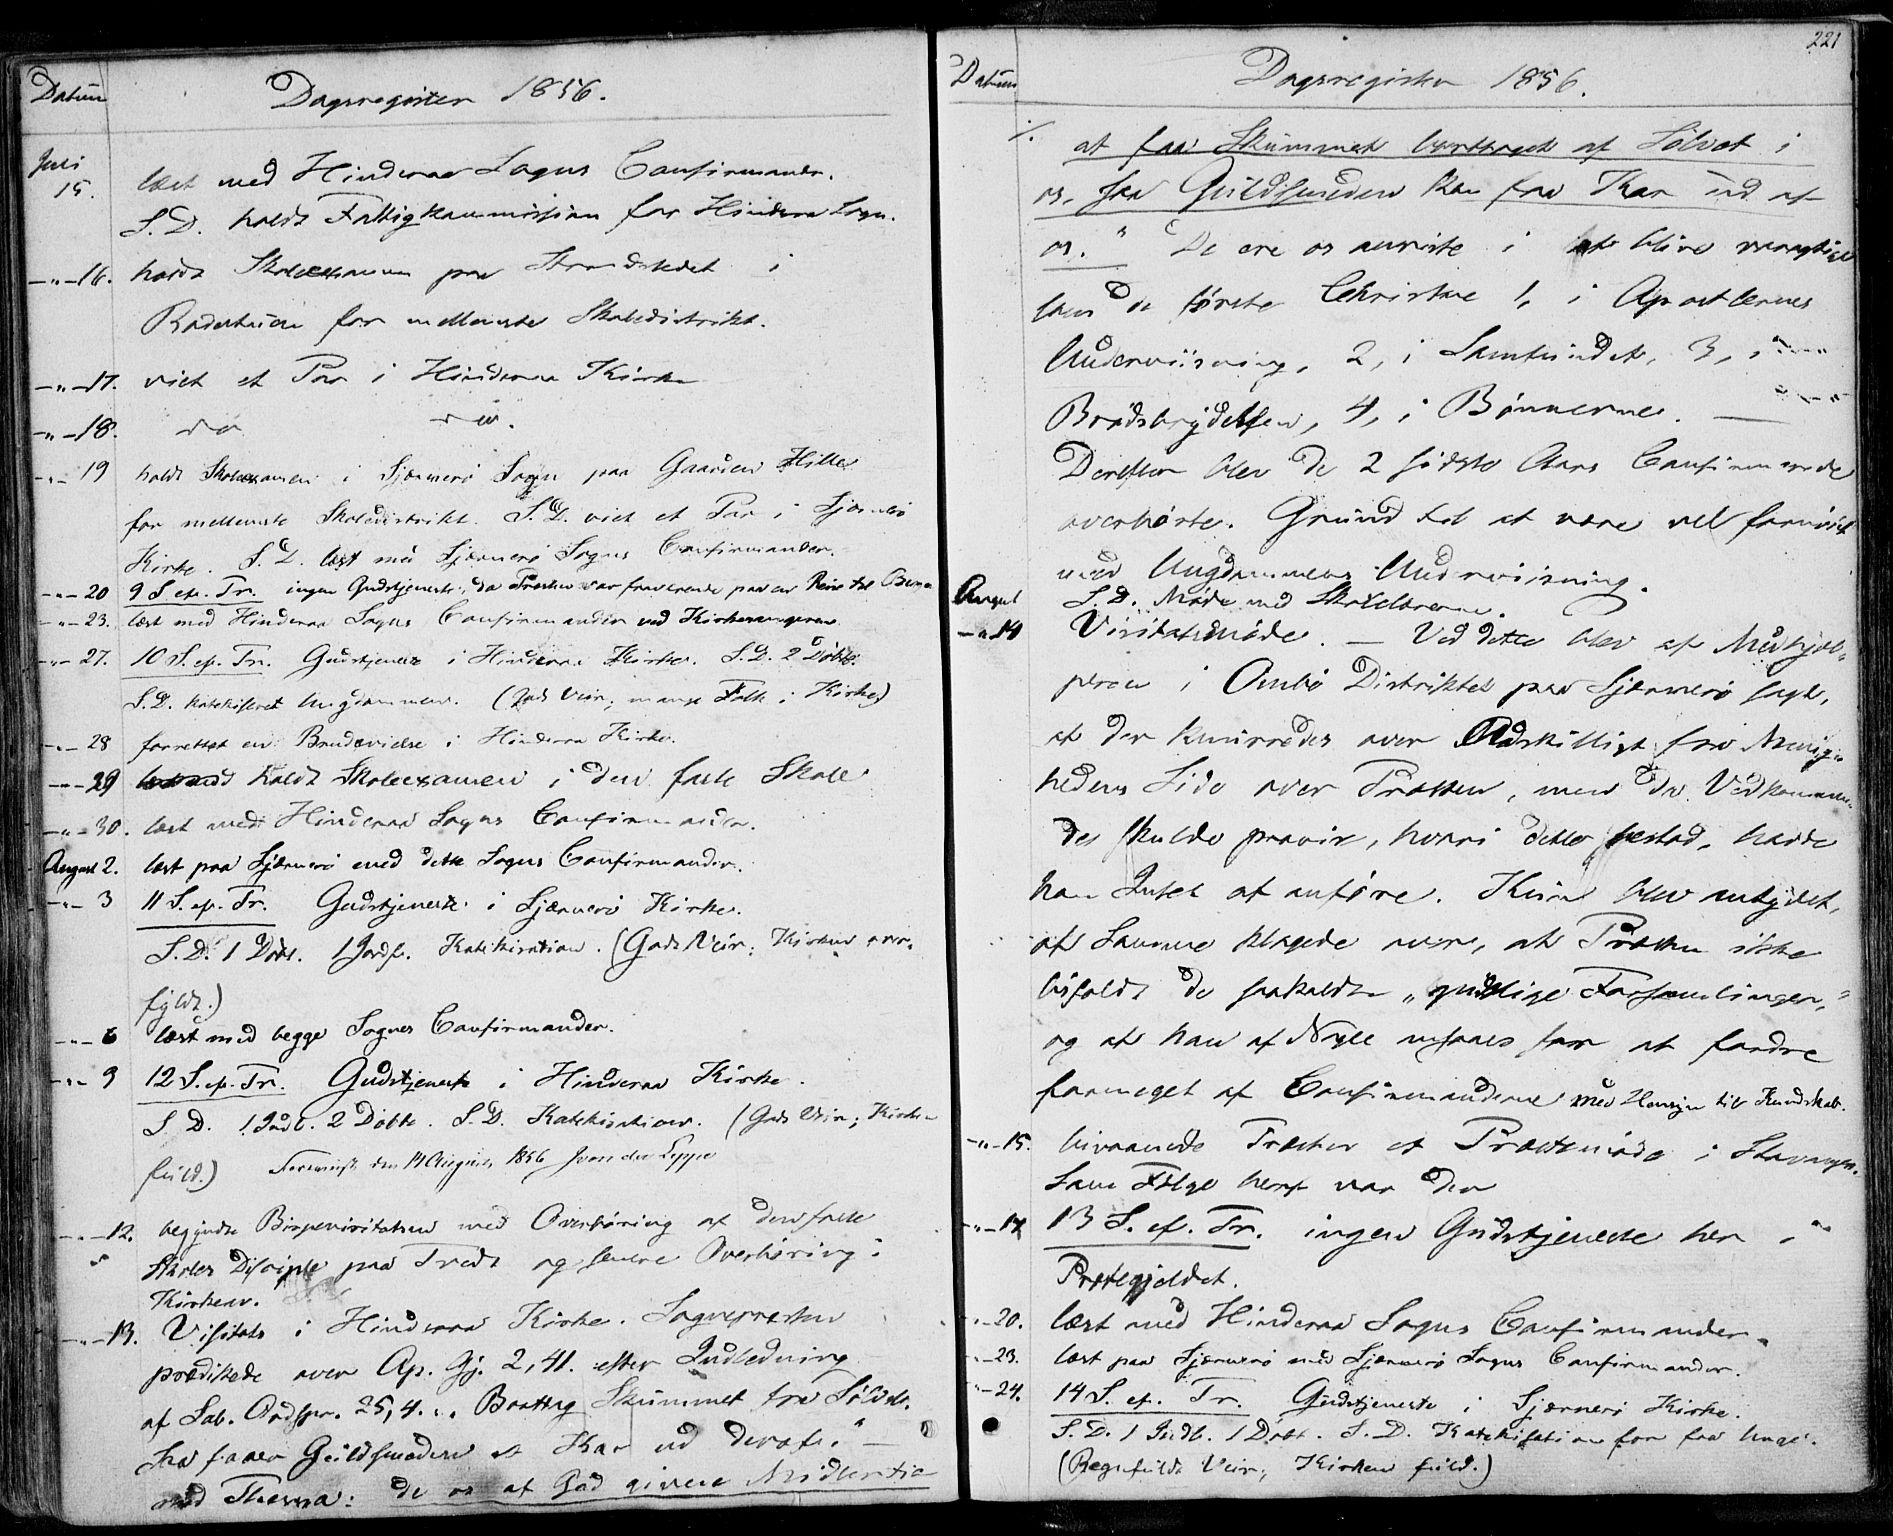 Datum
Dagsregister 1856.
Juli
15. læst med Hinderaa Sogns Confirmander.
S. D. holdt Fattigkommission for Hinderaa Sogn.
-"-16. holdt Skoleexamen paa Strandstedet i
for mellemste Skoledistrikt.
-"-17. viet et Par i Hinderaa Kirke
-"-18. do do.
-"-19 holdt Skoleexamen i Sjærnerø Sogn paa Gaarden Hille
for mellemste Skoledistrikt. S. D. viet et Par i Sjærnerø
Kirke. S. D. læst med Sjærnerø Sogns Confirmander.
-"-20 9 S. ef. Tr. ingen Gudstjeneste, da Præsten var fraværende paa en Reise til
-"-23. læst med Hinderaa Sogns Confirmander ved Kirkesangeren.
-"-27. 10 S. ef. Tr. Gudstjeneste i Hinderaa Kirke. S. D. 2 Døbte.
S. D. katekiseret Ungdommen. (Godt Veir; mange Folk i Kirke)
-"-28 forrettet en Brudevielse i Hinderaa Kirke.
-"-29 holdt Skoleexamen i den faste Skole
-"-30. læst med Hinderaa Sogns Confirmander.
August 2. læst paa Sjærnerø med dette Sogns Confirmander.
-"-3 11 S. ef. Tr. Gudstjeneste i Sjærnerø Kirke.
S. D. 1 Døbt. 1 Jordf. Katekisation. (Godt Veir; Kirken over-
fyldt.)
-"-6 læst med begge Sognes Confirmander.
-"-9 12 S. ef. Tr. Gudstjeneste i Hinderaa Kirke.
S. D. 1 Indl. 2 Døbte. S. D. Katekisation. (Godt Veir; Kirken
fuld.) den 14 August 1856
-"-12. begyndte Bispevisitatsen med Overhøring af den faste
Skoles Disciple paa Træde og senere Overhøring i
Kirken.
-"-13. Visitats i Hinderaa Kirke. Sognepræsten
prædikede over Ap. Gj. 2,41. efter Indledning
af Sal. Ordspr. 25,4. "Borttag Skummet fra Sølvet,
saa faaer Guldsmeden et Kar ud deraf." —
med Thema: de os af Gud givne Midler til
221
Datum
Dagsregister 1856.
at faa Skummet borttaget af Sølvet i
os, saa Guldsmeden kan faa Kar ud af
os." De ere os anviste i at blive
som de første Christne 1, i Apostlernes
Underviisning, 2, i Samfundet, 3, i
Brødsbrydelsen, 4, i Bønnerne. —
Derefter blev de 2 sidste Aars Confirmerede
overhørte. Grund til at være vel fornøiet
med Ungdommens Underviisning.
August S. D. Møde med Skolelærerne.
-"-14 Visitatsmøde. — Ved dette blev af Medhjæl-
peren i Ombo Distriktet paa Sjærnerø sagt,
at der knurredes over Adskilligt fra Menig-
hedens Side over Præsten, men da Vedkommen-
de skulde præcis, hvori dette bestod, havde
han Intet at anføre. Kun blev antydet,
at Samme klagede over, at Præsten ikke
bifaldt de saakaldte "gudelige Forsamlinger,"
og at han af Nogle ansaaes for at fordre
formeget af Confirmanderne med Hensyn til Kundskab.
-"-15. bivaanede Præsten et Præstemøde i Stavanger.
Som Følge heraf var der
-"-17 13 S. ef. Tr. ingen Gudstjeneste her i
Præstegjeldet.
-"-20. læst med Hinderaa Sogns Confirmander.
-"-23. læst paa Sjærnerø med Sjærnerø Sogns Confirmander.
-"-24. 14 S. ef. Tr. Gudstjeneste i Sjærnerø Kirke.
S. D. 1 Indl. 1 Døbt. S. D. Katekisation for faa Unge.
(Regnfuldt Veir; Kirken fuld.)